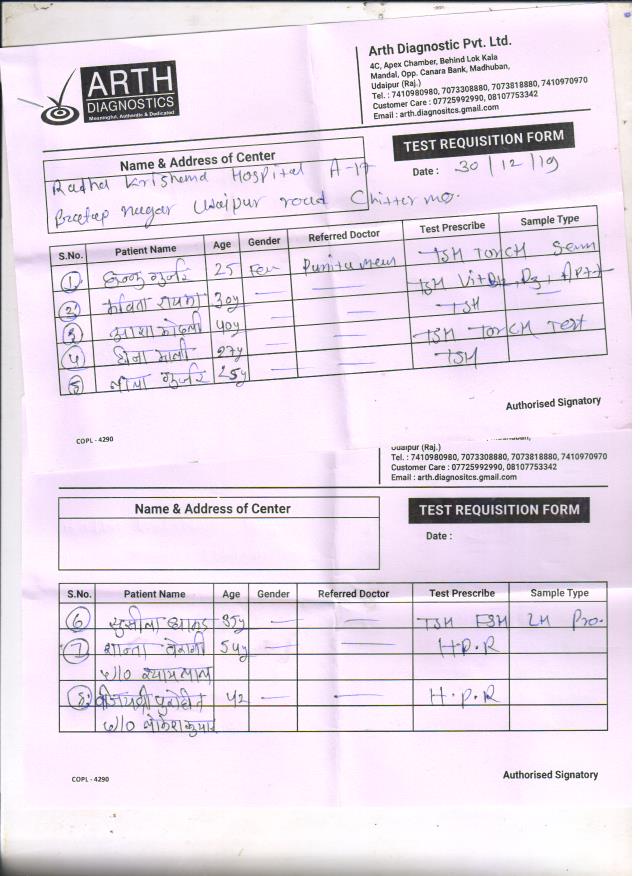 ARTH
DIAGNOSTICS
Meaningful, Authentic & Dedicated
Arth Diagnostic Pvt. Ltd.
4C, Apex Chamber, Behind Lok Kala
Mandal, Opp. Canara Bank, Madhuban,
Udaipur (Raj.)
Tel. : 7410980980, 7073308880, 7073818880, 7410970970
Customer Care : 07725992990, 08107753342
Email : arth.diagnositcs.gmail.com
TEST REQUISITION FORM
Date : 30/12/19
Name & Address of Center
Radha Krishana Hospital A-17
Pratap nagar Udaipur road
S.No. Patient Name Age Gender Referred Doctor Test Prescribe Sample Type
1 गुर्जर 25 Fem TSH TORCH
2 30y TSH
3 आशा 40y TSH
4 माली 27y TSH TORCH Test
5 गुर्जर 25y TSH
Authorised Signatory
COPL - 4290
Udaipur (Raj.)
Tel. : 7410980980, 7073308880, 7073818880, 7410970970
Customer Care : 07725992990, 08107753342
Email : arth.diagnositcs.gmail.com
Name & Address of Center
TEST REQUISITION FORM
Date :
S.No. Patient Name Age Gender Referred Doctor Test Prescribe Sample Type
6 सुसीला 35y TSH FSH LH Pro.
7 शान्ता 54y H.P.R
w/o श्यामलाल
8 42 H.P.R
w/o
COPL - 4290
Authorised Signatory